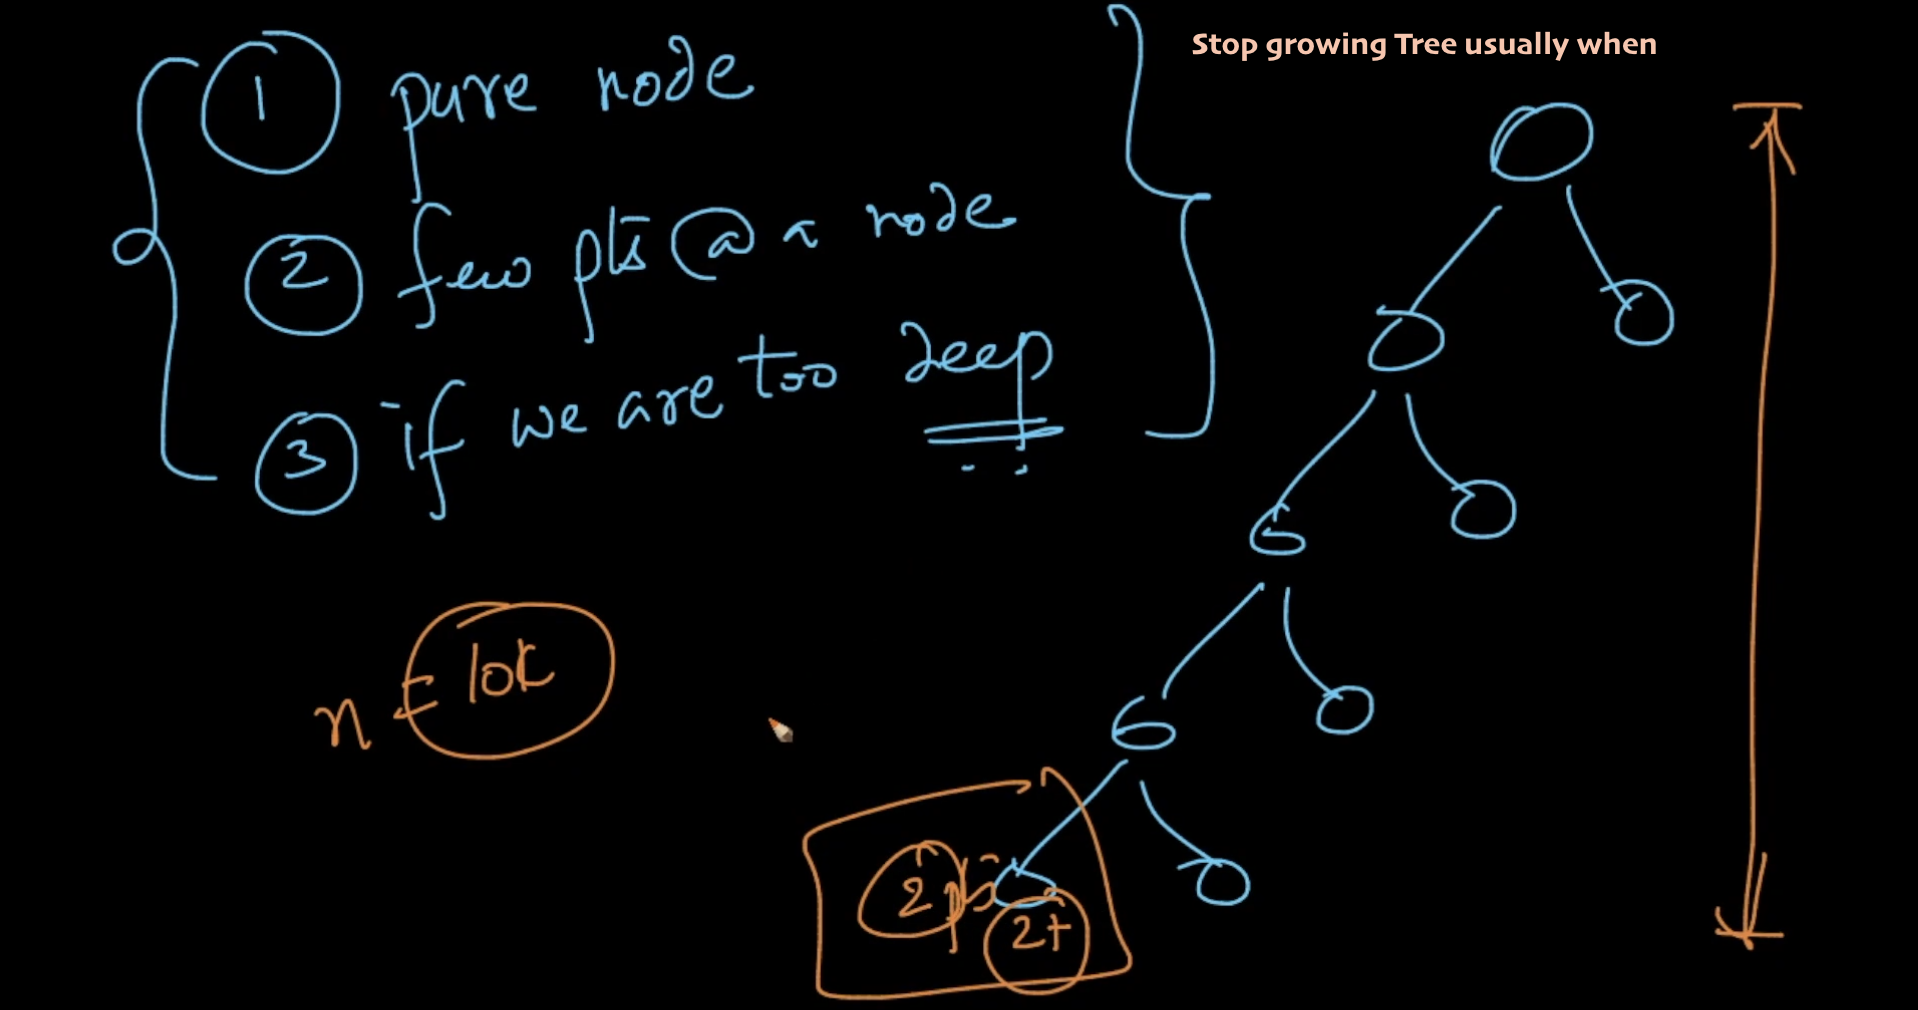 Stop growing Tree usually when
1 pure node
2 few pts @ a node
3 if we are too deep
n = 10k
2 pts
2+